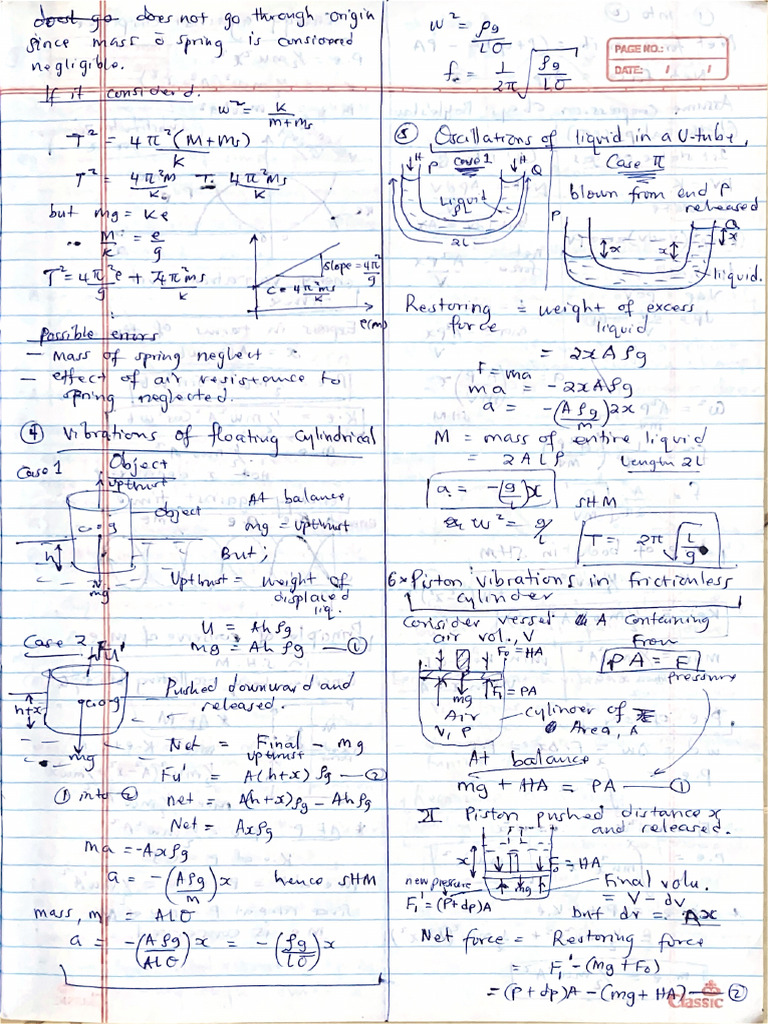 does not go through origin
since mass o̅ spring is considered
negligible.
If it considerd.
w² = k/(m+ms)
T² = 4π²(M+ms)/k
T² = 4π²m/k + 4π²ms/k
but mg = ke
∴ M/k = e/g
T² = 4π²e/g + 4π²ms/k
slope = 4π²/g
C = 4π²ms/k
e(m)
Possible errors
– mass of spring neglect
– effect of air resistance to
spring neglected.
④ Vibrations of floating cylindrical
Object
Case 1
upthrust
Object
c.o.g
h
mg
At balance
mg = upthrust
But;
Upthrust = weight of
displaced
liq.
U = Ahρg
mg = Ahρg — ①
Case 2
Fu'
h+x
c.o.g
mg
Pushed downward and
released.
Net = Final – mg
upthrust
Fu' = A(h+x)ρg — ②
① into ②
net = A(h+x)ρg – Ahρg
Net = Axρg
ma = -Axρg
a = -(Aρg/m)x hence SHM
mass, m = ALσ
a = -(Aρg/ALσ)x = -(ρg/Lσ)x
w² = ρg/Lσ
f = 1/2π √(ρg/Lσ)
PAGE NO.:
DATE: / /
⑤ Oscillations of liquid in a U-tube,
H P Case 1 H Q
Liquid
ρL
2L
Case II
blown from end P
released
P
Q
x
x x
liquid.
Restoring = weight of excess
force liquid
= 2xAρg
F = ma
ma = -2xAρg
a = -(Aρg/m)2x
M = mass of entire liquid
= 2ALρ Length 2L
a = -(g/L)x SHM
w² = g/L
T = 2π√(L/g)
6 Piston vibrations in frictionless
cylinder
Consider vessel A containing
air vol., V
From
PA = F
pressure
F₀ = HA
mg
F₁ = PA
Air
V, P
cylinder of
Area, A
At balance
mg + HA = PA — ①
II Piston pushed distance x
and released.
x
F₀ = HA
mg
new pressure
F₁' = (P+dp)A
Final volu.
= V – dv
but dv = Ax
Net force = Restoring force
= F₁' – (Mg + F₀)
= (P + dp)A – (mg + HA) — ②
Classic